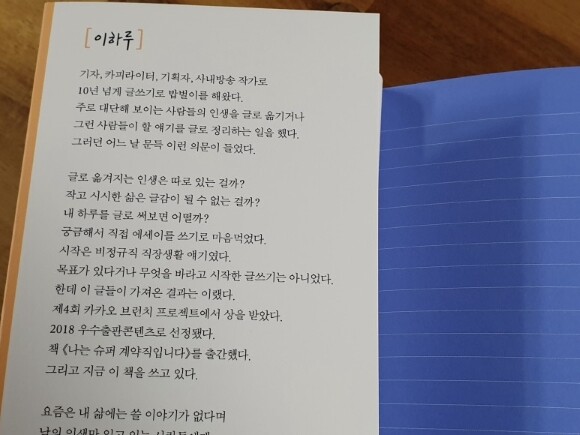 [이하루]
기자, 카피라이터, 기획자, 사내방송 작가로
10년 넘게 글쓰기로 밥벌이를 해왔다.
주로 대단해 보이는 사람들의 인생을 글로 옮기거나
그런 사람들이 할 얘기를 글로 정리하는 일을 했다.
그러던 어느 날 문득 이런 의문이 들었다.
글로 옮겨지는 인생은 따로 있는 걸까?
작고 시시한 삶은 글감이 될 수 없는 걸까?
내 하루를 글로 써보면 어떨까?
궁금해서 직접 에세이를 쓰기로 마음먹었다.
시작은 비정규직 직장생활 얘기였다.
목표가 있다거나 무엇을 바라고 시작한 글쓰기는 아니었다.
한데 이 글들이 가져온 결과는 이랬다.
제4회 카카오 브런치 프로젝트에서 상을 받았다.
2018 우수출판콘텐츠로 선정됐다.
책 《나는 슈퍼 계약직입니다》를 출간했다.
그리고 지금 이 책을 쓰고 있다.
요즘은 내 삶에는 쓸 이야기가 없다며
남의 인생만 읽고 있는